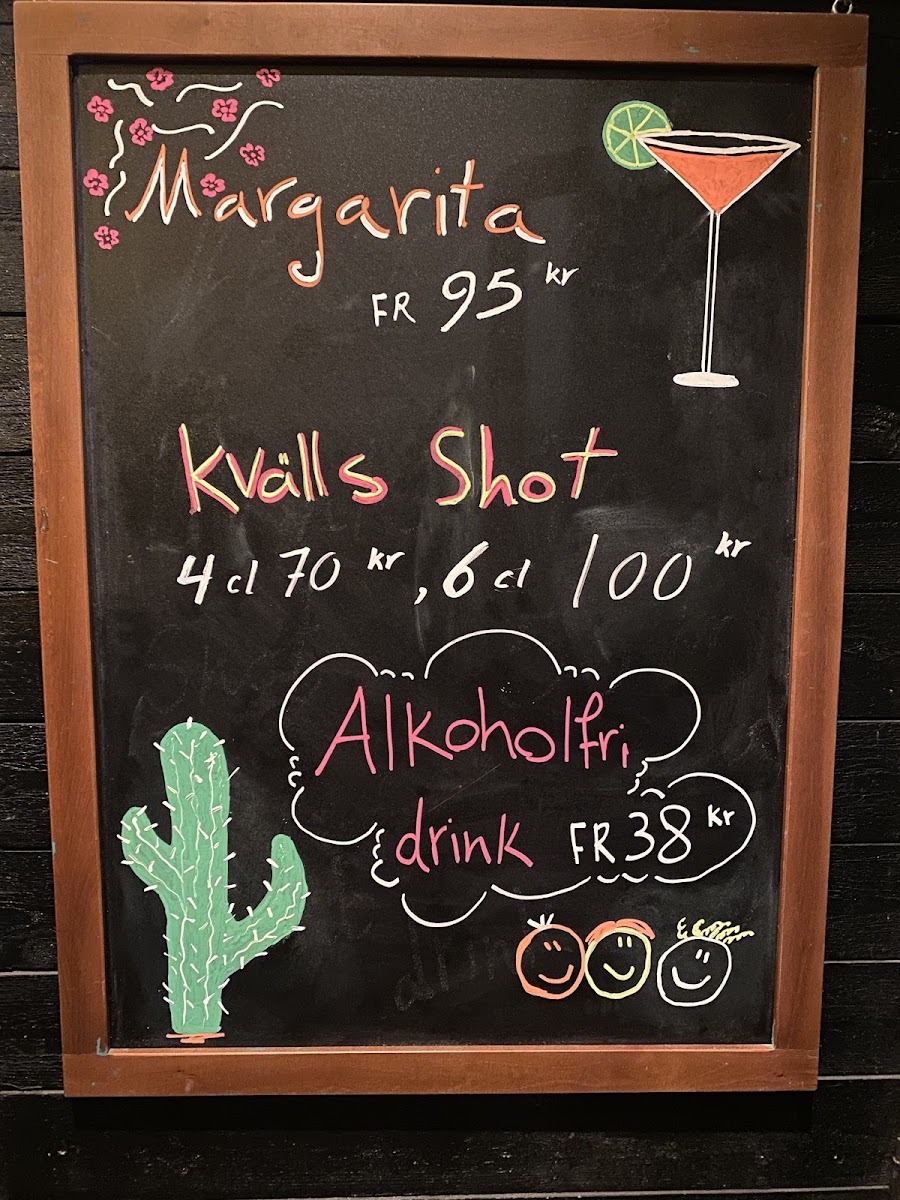 Margarita
FR 95 kr
Kvälls Shot
4 cl 70 kr, 6 cl 100 kr
Alkoholfri
drink FR 38 kr